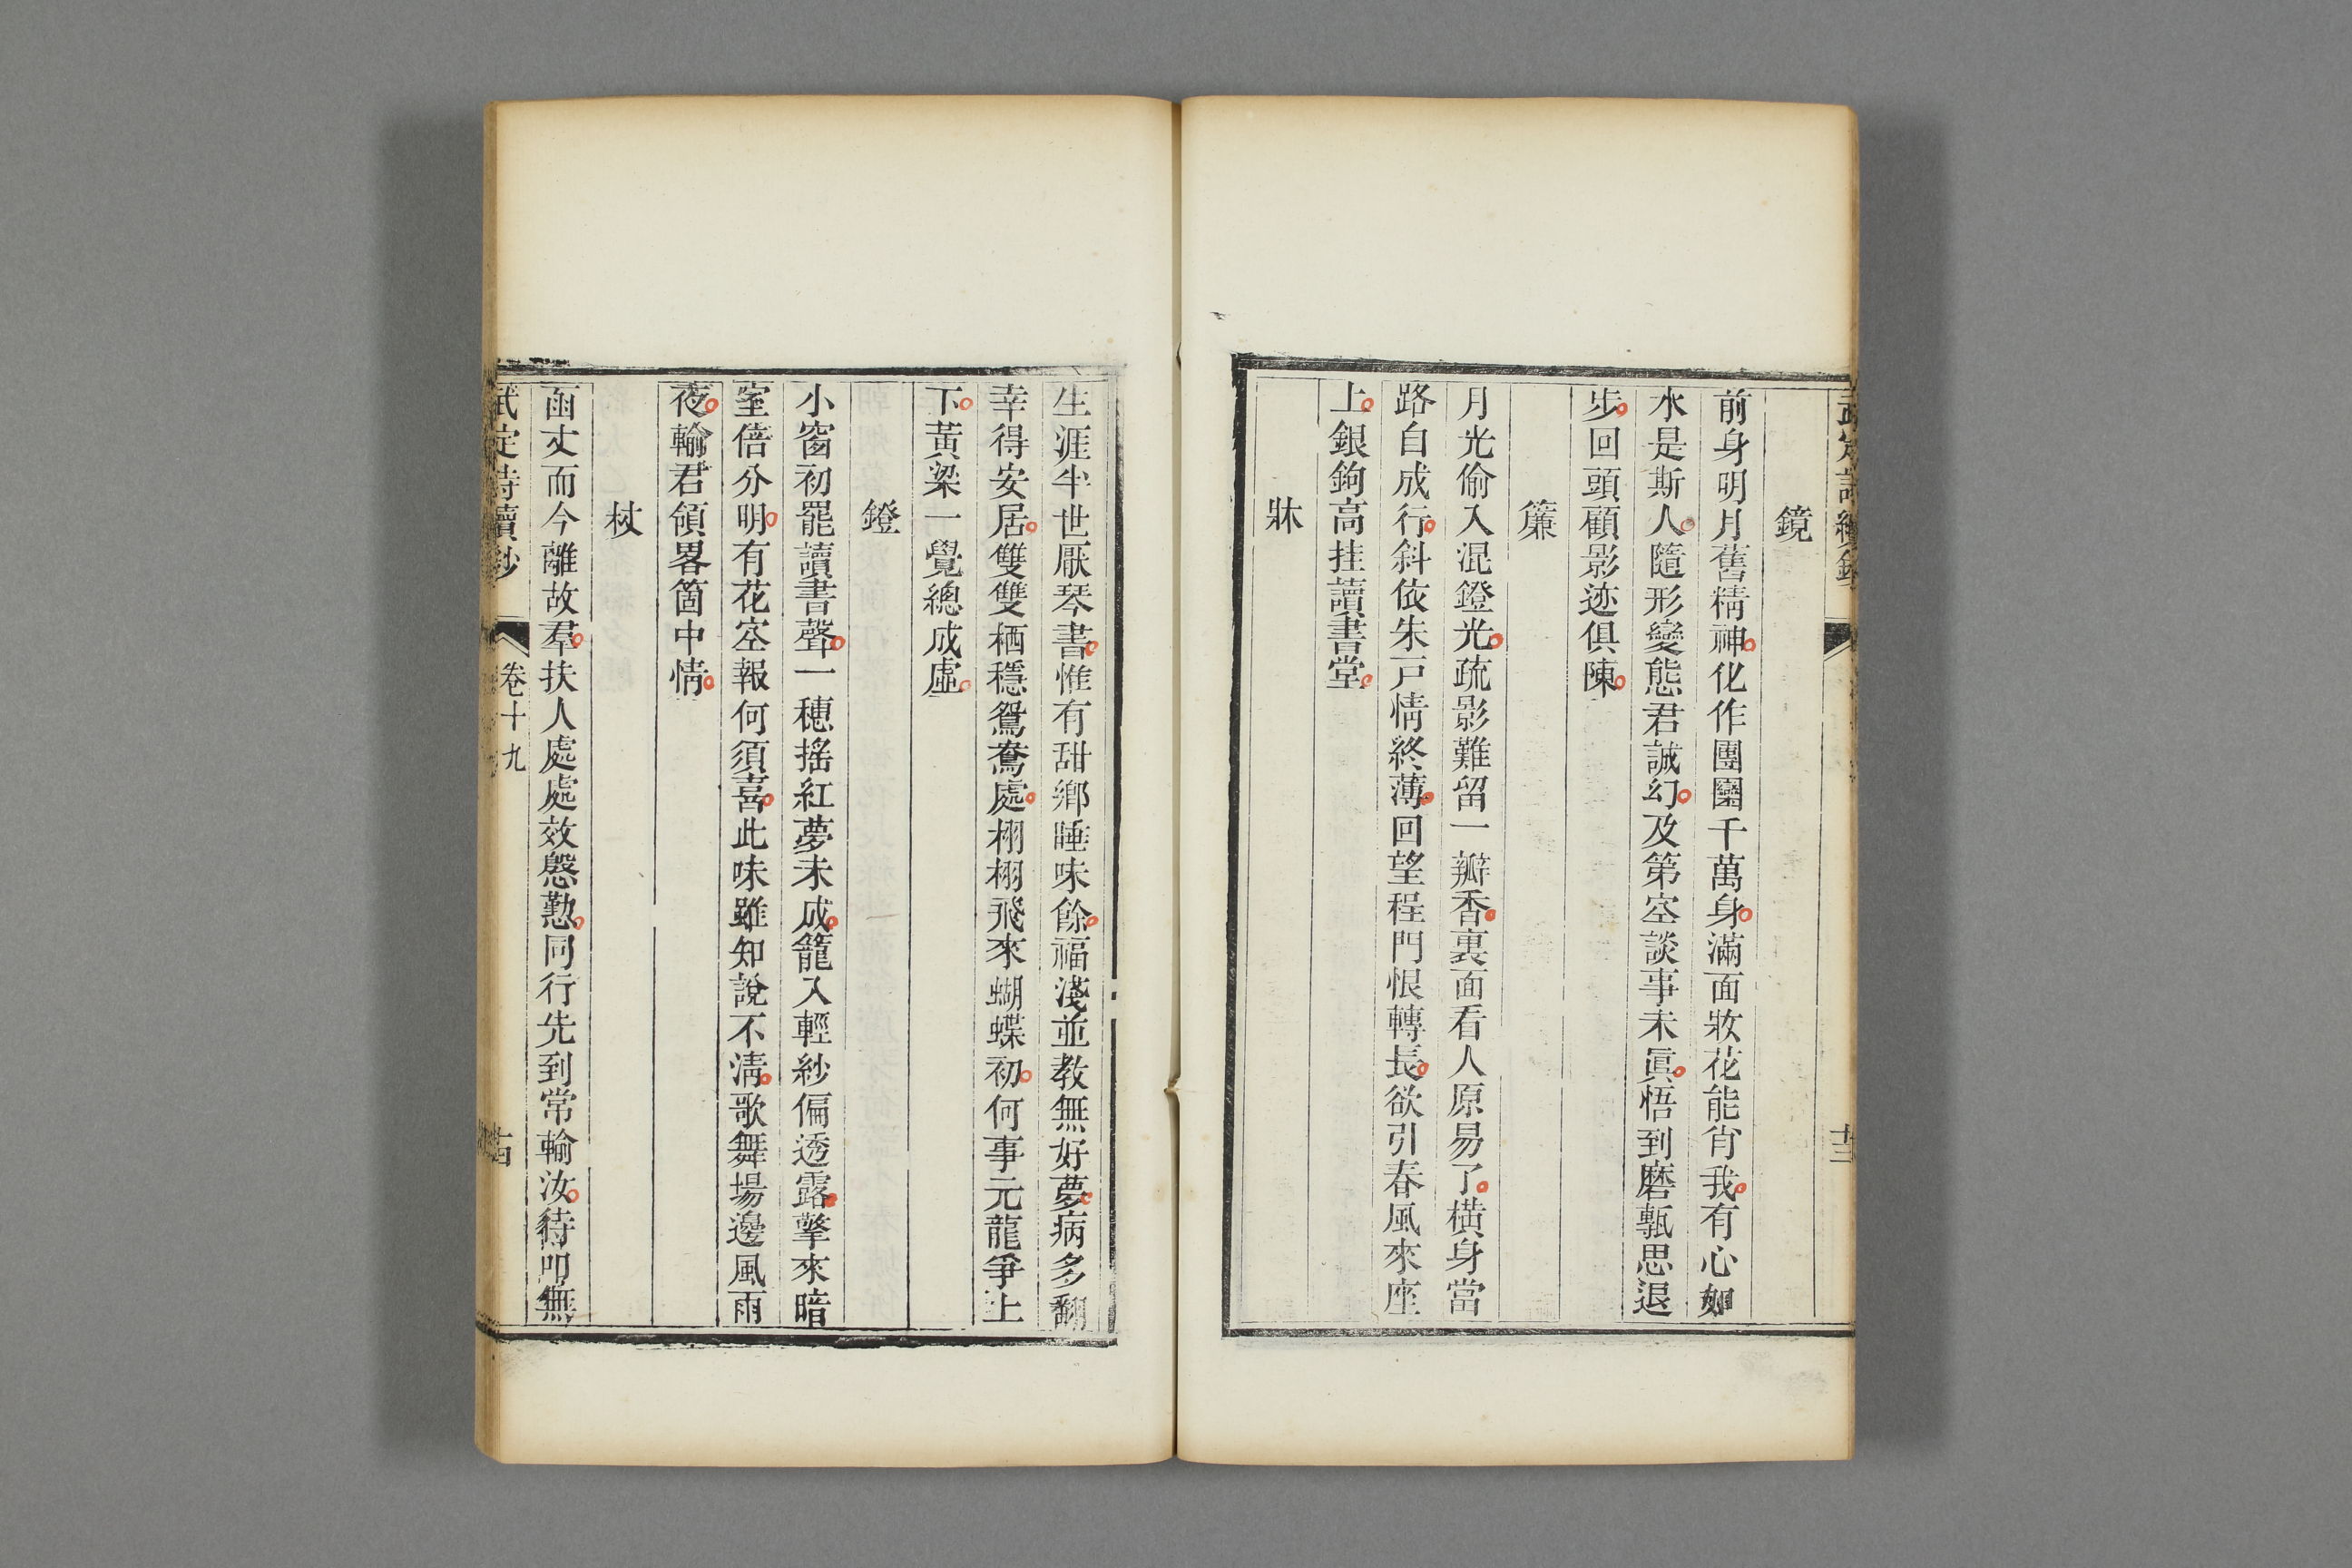 鏡
前身明月舊精神化作團圞千萬身滿面妝花能肯我有心如
水是斯人隨形變態君誠幻及第空談事未眞悟到磨甎思退
步回頭顧影迹俱陳
簾
月光偷入混鐙光疏影難留一瓣香裏面看人原易了橫身當
路自成行斜依朱戸情終薄回望程門恨轉長欲引春風來座
上銀鉤高挂讀書堂
牀
生涯半世厭琴書惟有甜鄉睡味餘福淺並教無好夢病多翻
幸得安居雙雙栖穩鴛鴦處栩栩飛來蝴蝶初何事元龍爭上
下黃粱一覺總成虛
鐙
小窗初罷讀書聲一穗搖紅夢未成籠入輕紗偏透露擎來暗
室倍分明有花空報何須喜此味雖知說不淸歌舞場邊風雨
夜輸君領畧箇中情
杖
函丈而今離故羣扶人處處效慇懃同行先到常輸汝待叩無
武定詩續鈔
卷十九